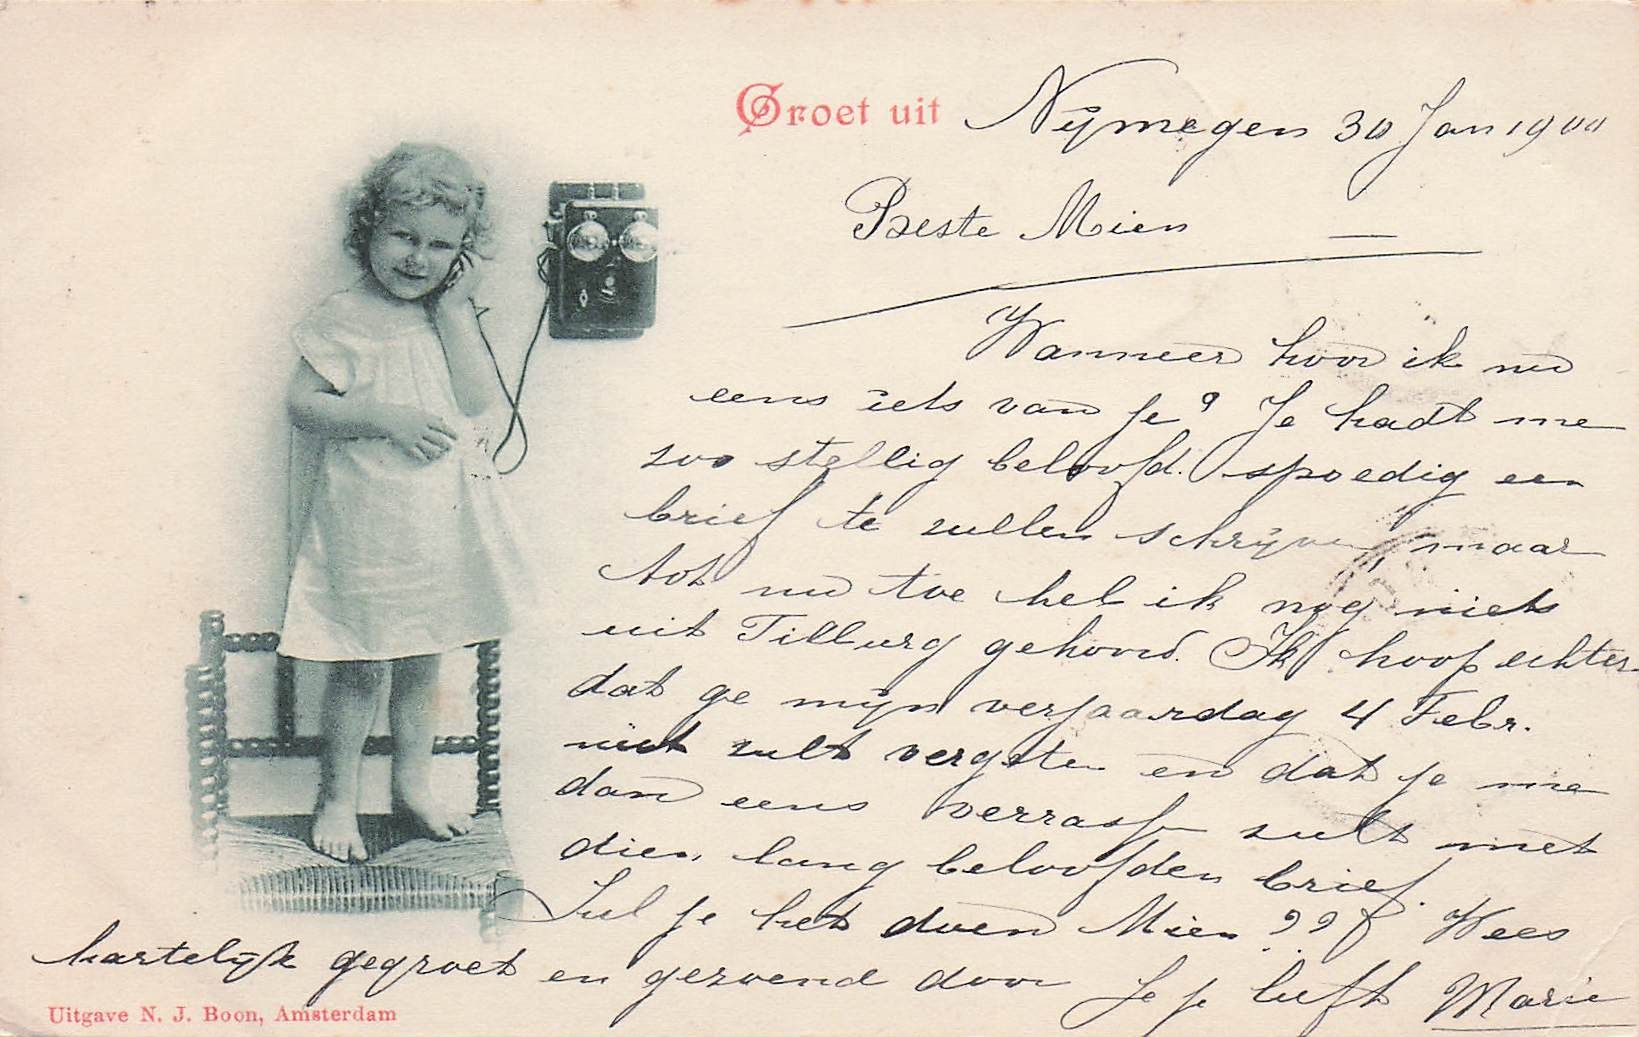 Groet uit Nijmegen 30 Jan 1900
Beste Mien
Wanneer hoor ik nu
eens iets van je? Je hadt me
zoo stellig beloofd. spoedig een
brief te zullen schrijven, maar
tot nu toe heb ik nog niets
uit Tilburg gehoord. Ik hoop echter
dat ge mijn verjaardag 4 Febr.
niet zult vergeten en dat je me
dan eens verrast zult met
dien lang beloofden brief.
Zul je het doen Mien?? Wees
hartelijk gegroet en gezoend door Je je liefh Marie
Uitgave N. J. Boon, Amsterdam